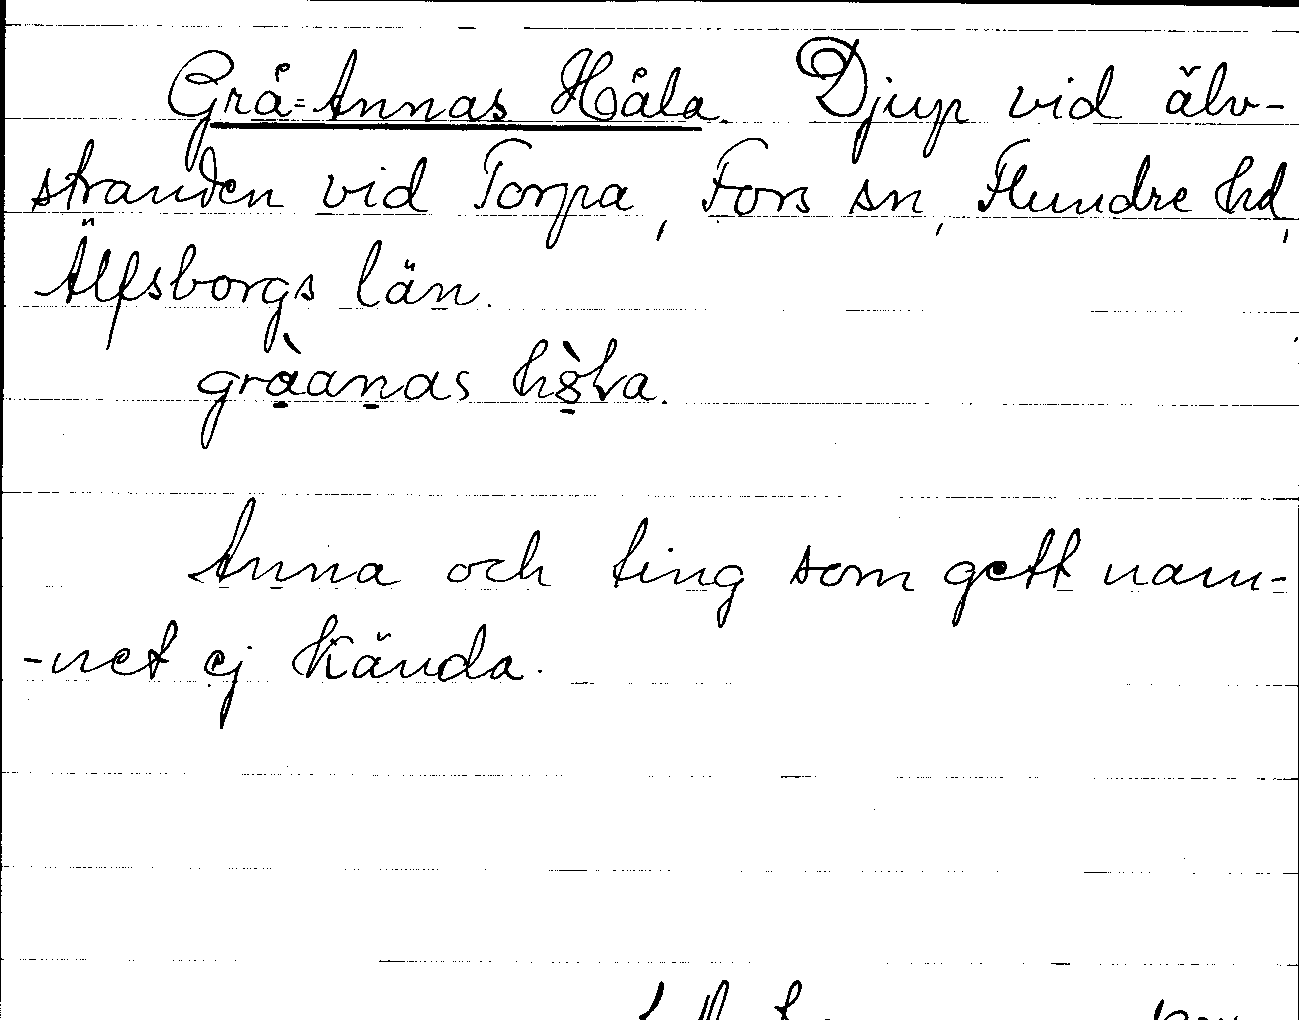 Grå-Annas Håla. Djup vid älv-
stranden vid Torpa, Fors sn, Flundre hd,
Älfsborgs län.
Anna och ting som gett nam-
-net ej kända.